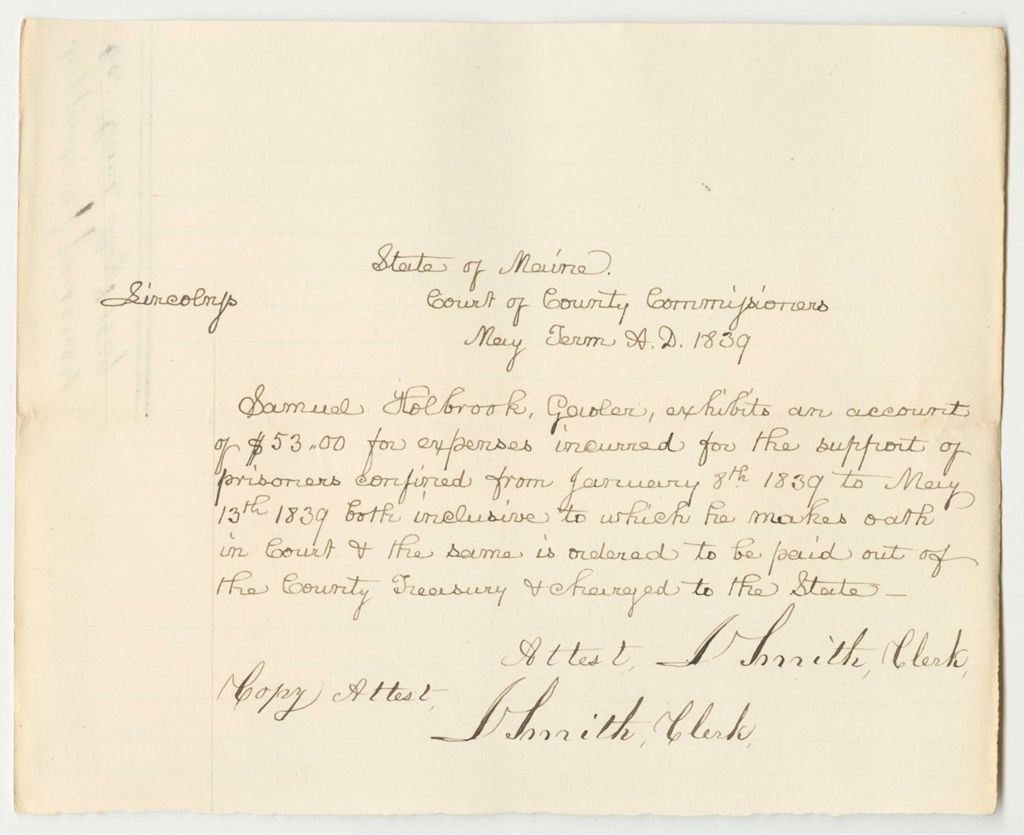 State of Maine.
Lincoln ss
Court of County Commissioners
May Term A.D. 1839
Samuel Holbrook, Gaoler, exhibits an account
of $53..00 for expenses incurred for the support of
prisoners confined from January 8th 1839 to May
13th 1839 both inclusive to which he makes oath
in Court & the same is ordered to be paid out of
the County Treasury & charged to the State —
Attest, Smith, Clerk,
Copy Attest,
Smith, Clerk,